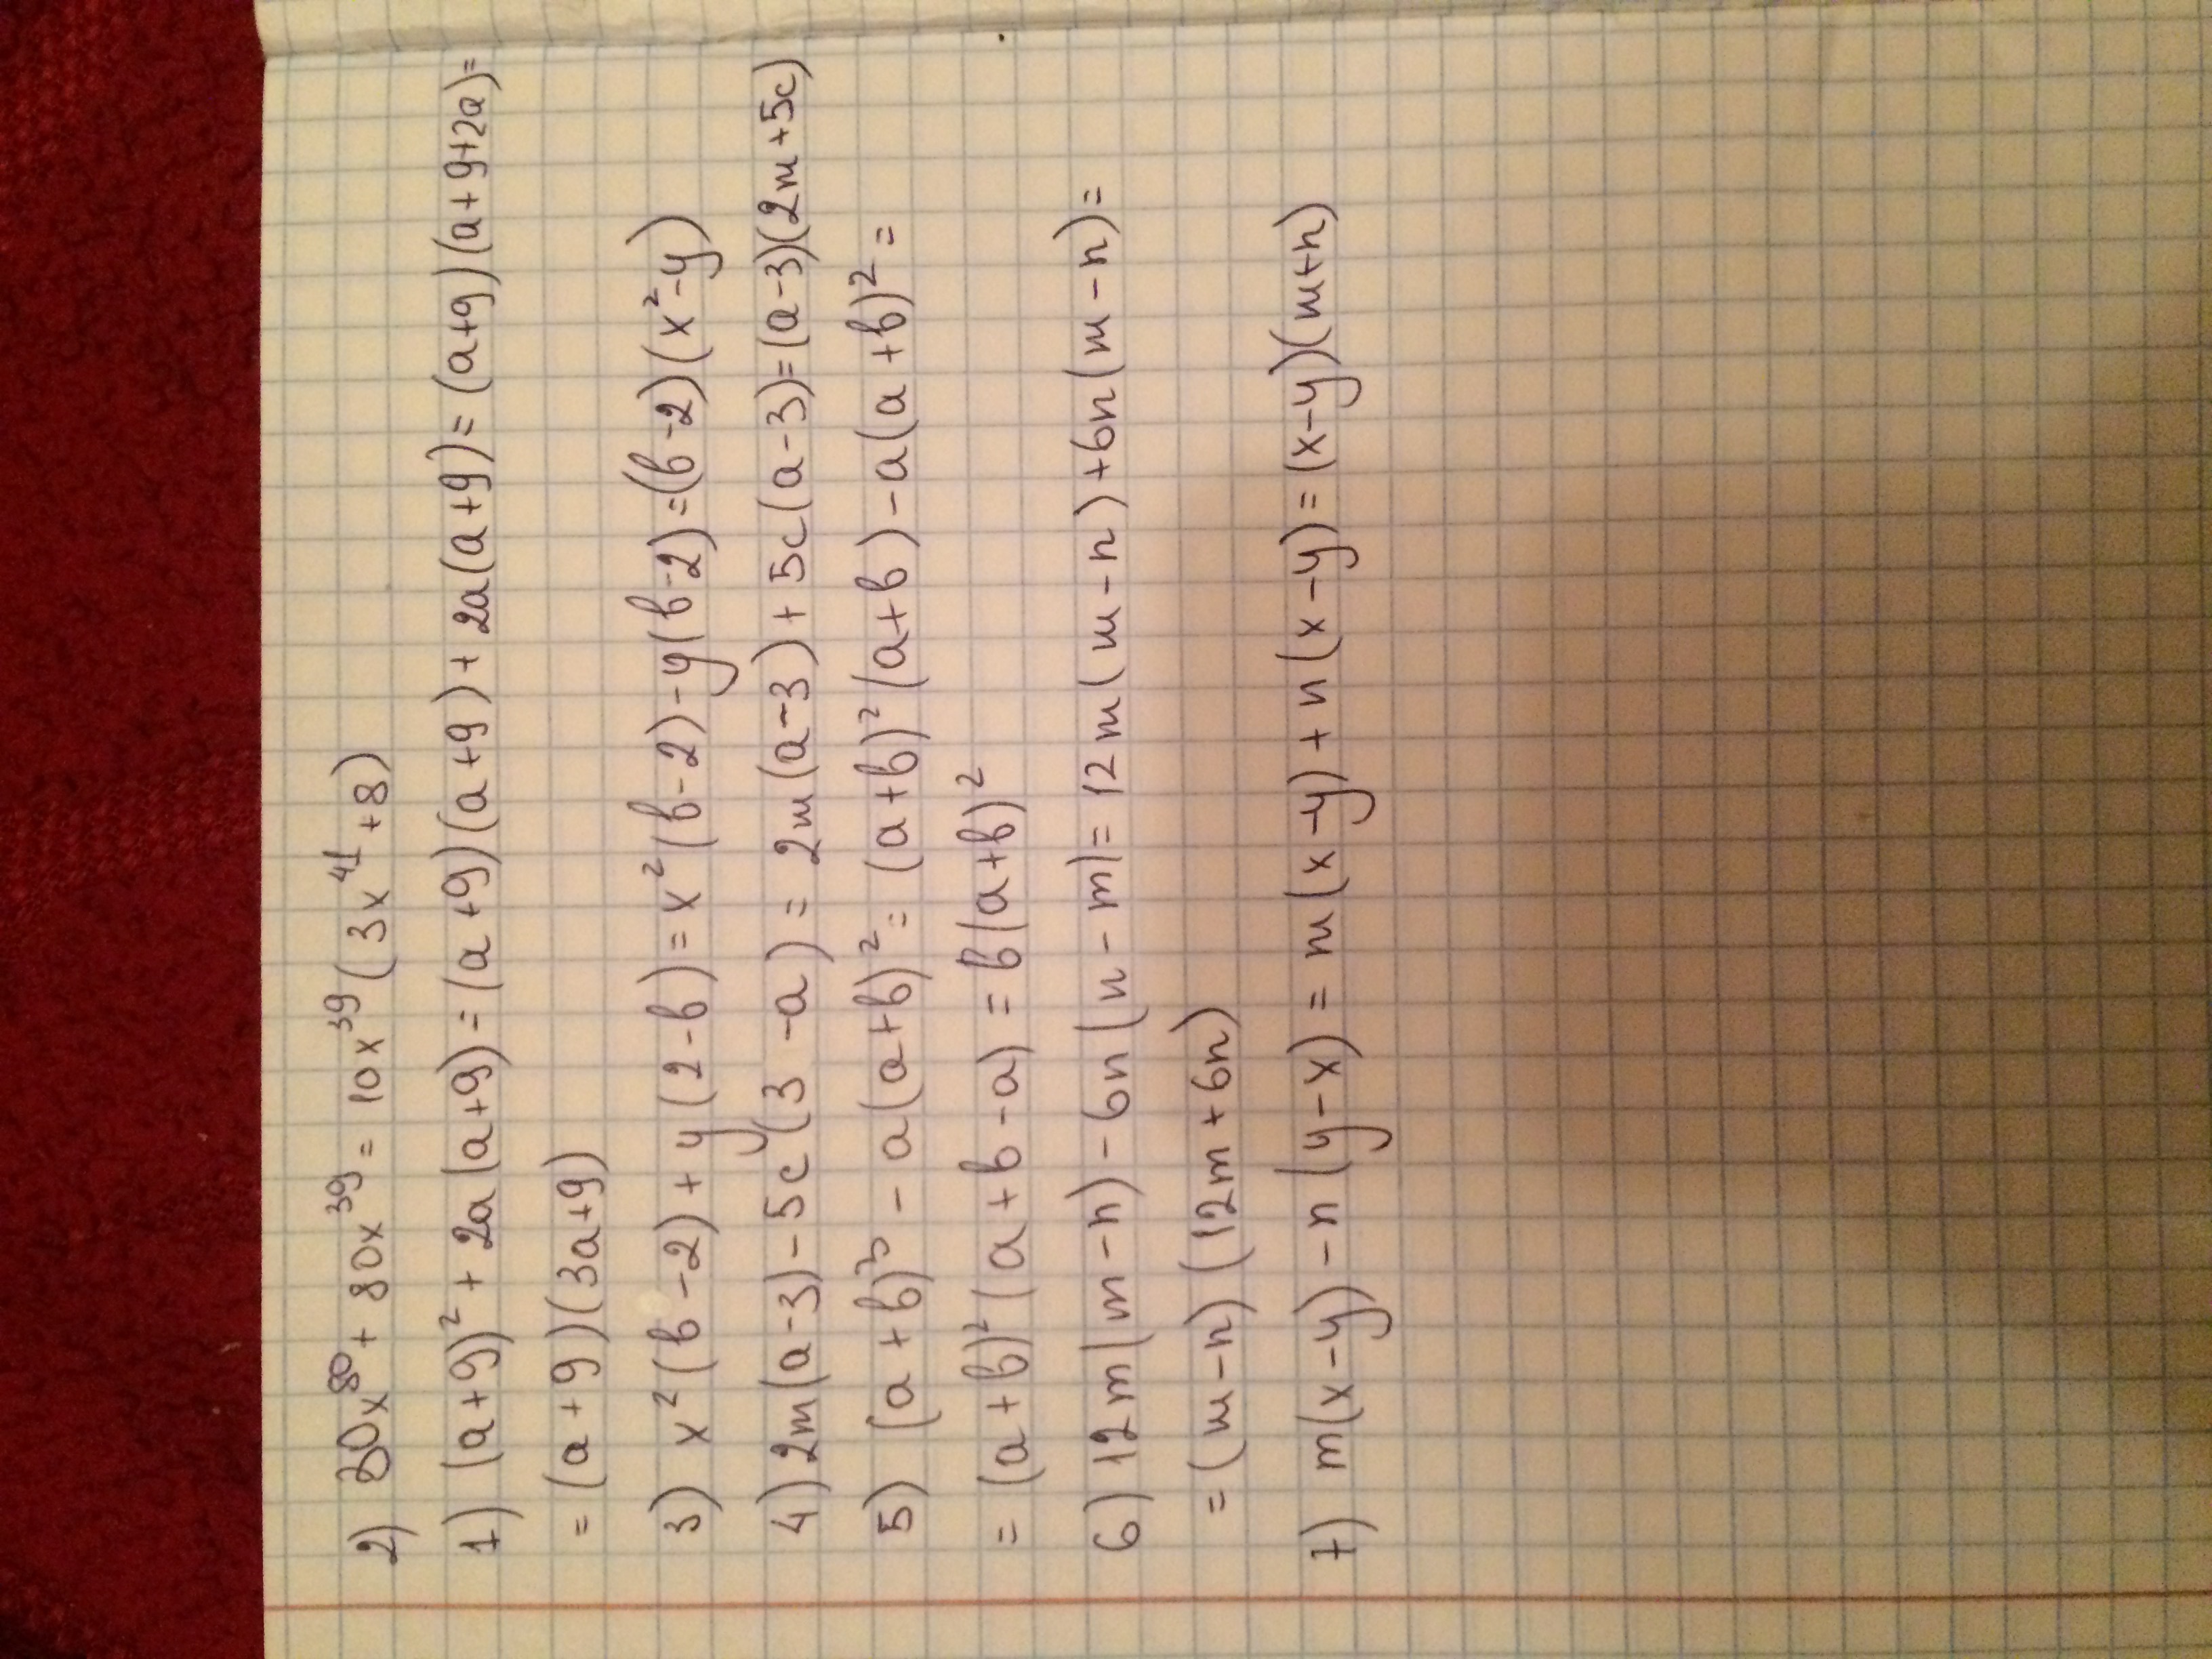 2) 30x⁸⁰ + 80x³⁹ = 10x³⁹(3x⁴¹+8)
1) (a+9)² + 2a(a+9) = (a+9)(a+9) + 2a(a+9) = (a+9)(a+9+2a) =
= (a+9)(3a+9)
3) x²(b-2) + y(2-b) = x²(b-2) - y(b-2) = (b-2)(x²-y)
4) 2m(a-3) - 5c(3-a) = 2m(a-3) + 5c(a-3) = (a-3)(2m+5c)
5) (a+b)³ - a(a+b)² = (a+b)²(a+b) - a(a+b)² =
= (a+b)²(a+b-a) = b(a+b)²
6) 12m(m-n) - 6n(n-m) = 12m(m-n) + 6n(m-n) =
= (m-n)(12m+6n)
7) m(x-y) - n(y-x) = m(x-y) + n(x-y) = (x-y)(m+n)